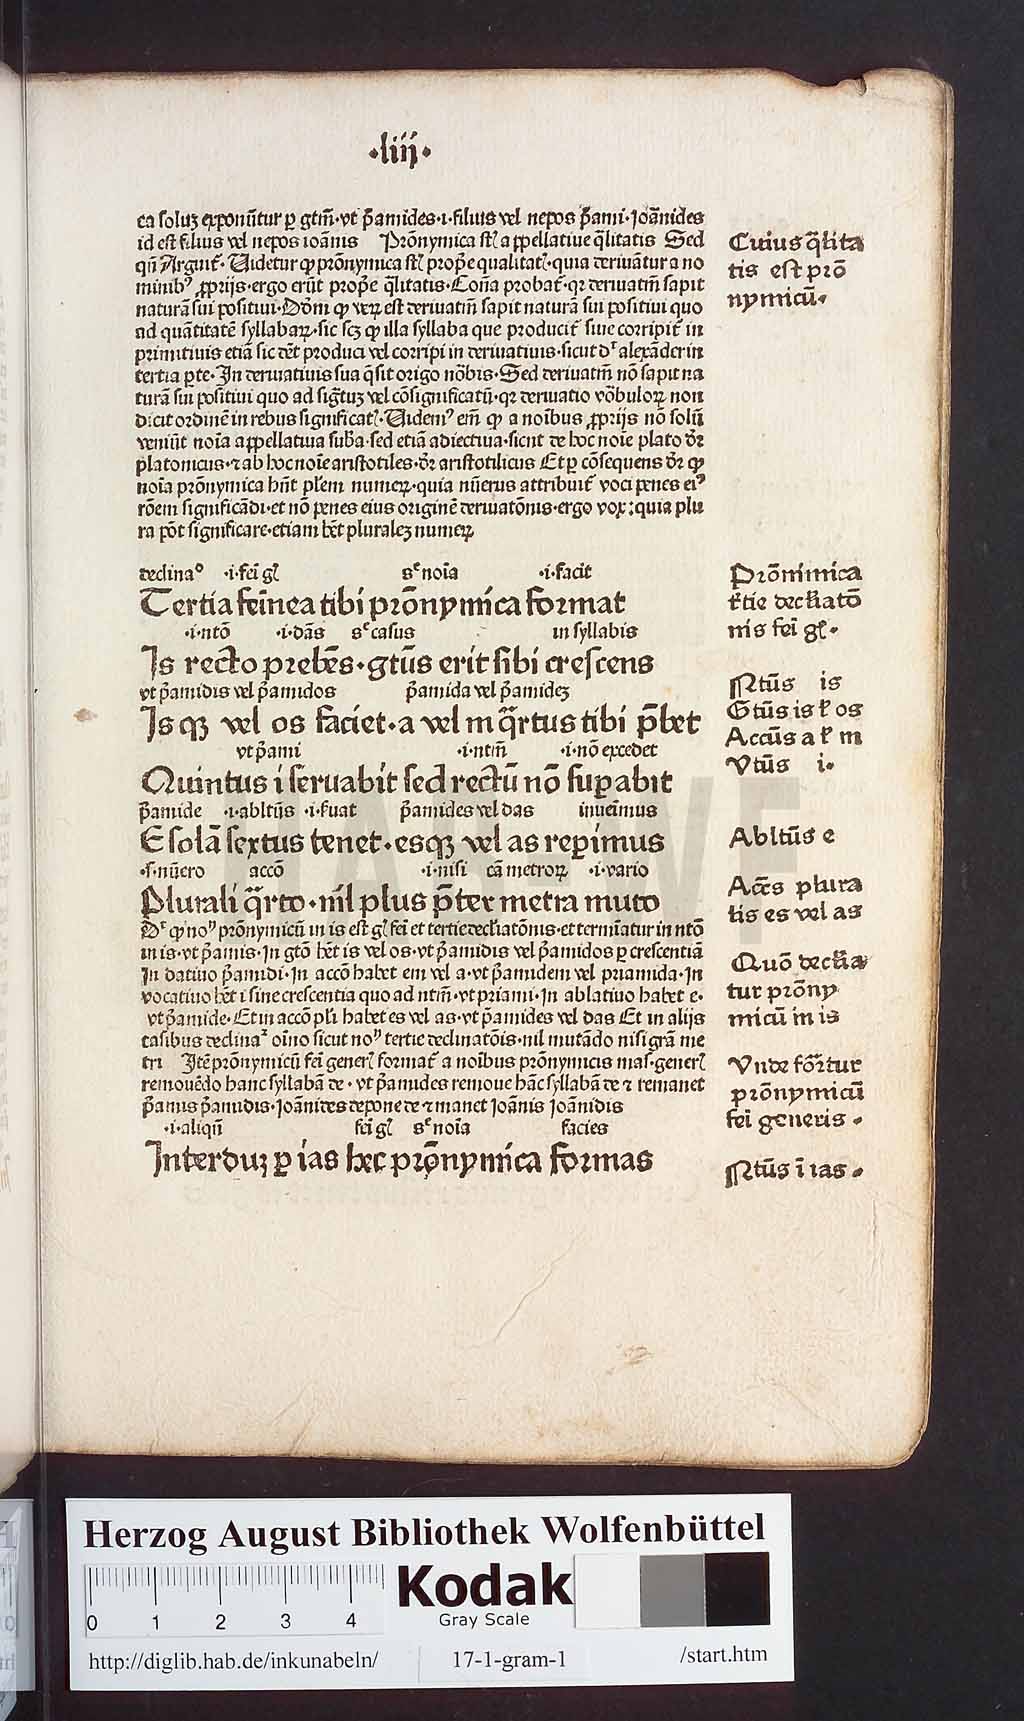 ·liij·
ca soluz exponūtur ꝑ gtm̄·vt p̄amides·i·filius vel nepos p̄ami·Joānides
id est filius vel nepos ioānis Prōnymica st̄ appellatiue q̄litatis Sed
qn̄ Arguit̄· Uidetur ꝙ prōnymica st̄ prop̄e qualitat̄·quia deriuātur a no
minibꝰ ꝓprijs·ergo erūt prop̄e q̄litatis·Coña probat̄·qꝛ deriuatm̄ sapit
naturā sui positiui·Dōm ꝙ veꝝ est deriuatm̄ sapit naturā sui positiui quo
ad quātitatē syllabaꝝ·sic scꝫ ꝙ illa syllaba que producit̄ siue corripit̄ in
primitiuis etiā sic dēt produci vel corripi in deriuatiuis·sicut dꝛ alexāder in
tertia ꝑte·In deriuatiuis sua q̄sit origo nōbis·Sed deriuatm̄ nō sapit na
turā sui positiui quo ad siḡtuꝫ vel cōsignificatū·qꝛ deriuatio vōbuloꝝ non
dicit ordinē in rebus significat̄·Uidemꝰ em̄ ꝙ a noībus ꝓprijs nō solū
veniūt noīa appellatiua sub̄a·sed etiā adiectiua·sicut de hoc noīe plato dr̄
platonicus·⁊ ab hoc noīe aristotiles·dr̄ aristotilicus Et ꝑ cōsequens dr̄ ꝙ
noīa prōnymica hn̄t pl̄em numeꝝ·quia nūerus attribuit̄ voci penes eiꝰ
rōem significādi·et nō penes eius originē deriuatōnis·ergo vox:quia plu
ra pōt significare·etiam h̄et pluralez numeꝝ
declinaº ·i·fei gl̄ sᵉ noīa ·i·facit
Tertia feīnea tibi prōnymica format
·i·ntō ·i·dās sᵉ casus in syllabis
Is recto prebēs·gtūs erit sibi crescens
vt p̄amidis vel p̄amidos p̄amida vel p̄amideꝫ
Is qꝫ vel os faciet·a vel m q̄rtus tibi p̄bet
vt p̄ami ·i·ntm̄ ·i·nō excedet
Quintus i seruabit sed rectū nō suꝑabit
p̄amide ·i·abltūs ·i·fuat p̄amides vel das inueīmus
E solā sextus tenet·esqꝫ vel as reꝑimus
·s·nūero accō ·i·nisi cā metroꝝ ·i·vario
Plurali q̄rto·nil plus p̄ter metra muto
Dꝛ ꝙ noⁿ prōnymicū in is est gl̄ fei et tertie declīatōnis·et termīatur in ntō
in is·vt p̄amis·In gtō h̄et is vel os·vt p̄amidis vel p̄amidos ꝑ crescentiā
In datiuo p̄amidi·In accō habet em vel a·vt p̄amidem vel priamida·In
vocatiuo h̄et i sine crescentia quo ad ntm̄·vt priami·In ablatiuo habet e·
vt p̄amide·Et in accō pl̄i habet es vel as·vt p̄amides vel das Et in alijs
casibus declinaꝛ oīno sicut noⁿ tertie declinatōis·nil mutādo nisi grā me
tri Itē prōnymicū fei gener̄ format̄ a noībus prōnymicis mas·gener̄
remouēdo hanc syllabā de·vt p̄amides remoue hāc syllabā de ⁊ remanet
p̄amis p̄amidis·Joānides depone de ⁊ manet Joānis Joānidis
·i·aliqn̄ fei gl̄ sᵉ noīa facies
Interduꝫ ꝑ ias hec prōnymica formas
Cuius q̄lita
tis est prō
nymicū·
Prōnimica
t̄tie declīatō
nis fei gl̄·
Ntūs is
Gtūs is ł os
Accūs a ł m
Vtūs i·
Abltūs e
Accs̄ plura
lis es vel as
Quō declīa
tur prōny
micū in is
Vnde for̄tur
prōnymicū
fei generis·
Ntūs ī ias·
HAB WF
Herzog August Bibliothek Wolfenbüttel
0 1 2 3 4
Kodak
Gray Scale
http://diglib.hab.de/inkunabeln/ 17-1-gram-1 /start.htm